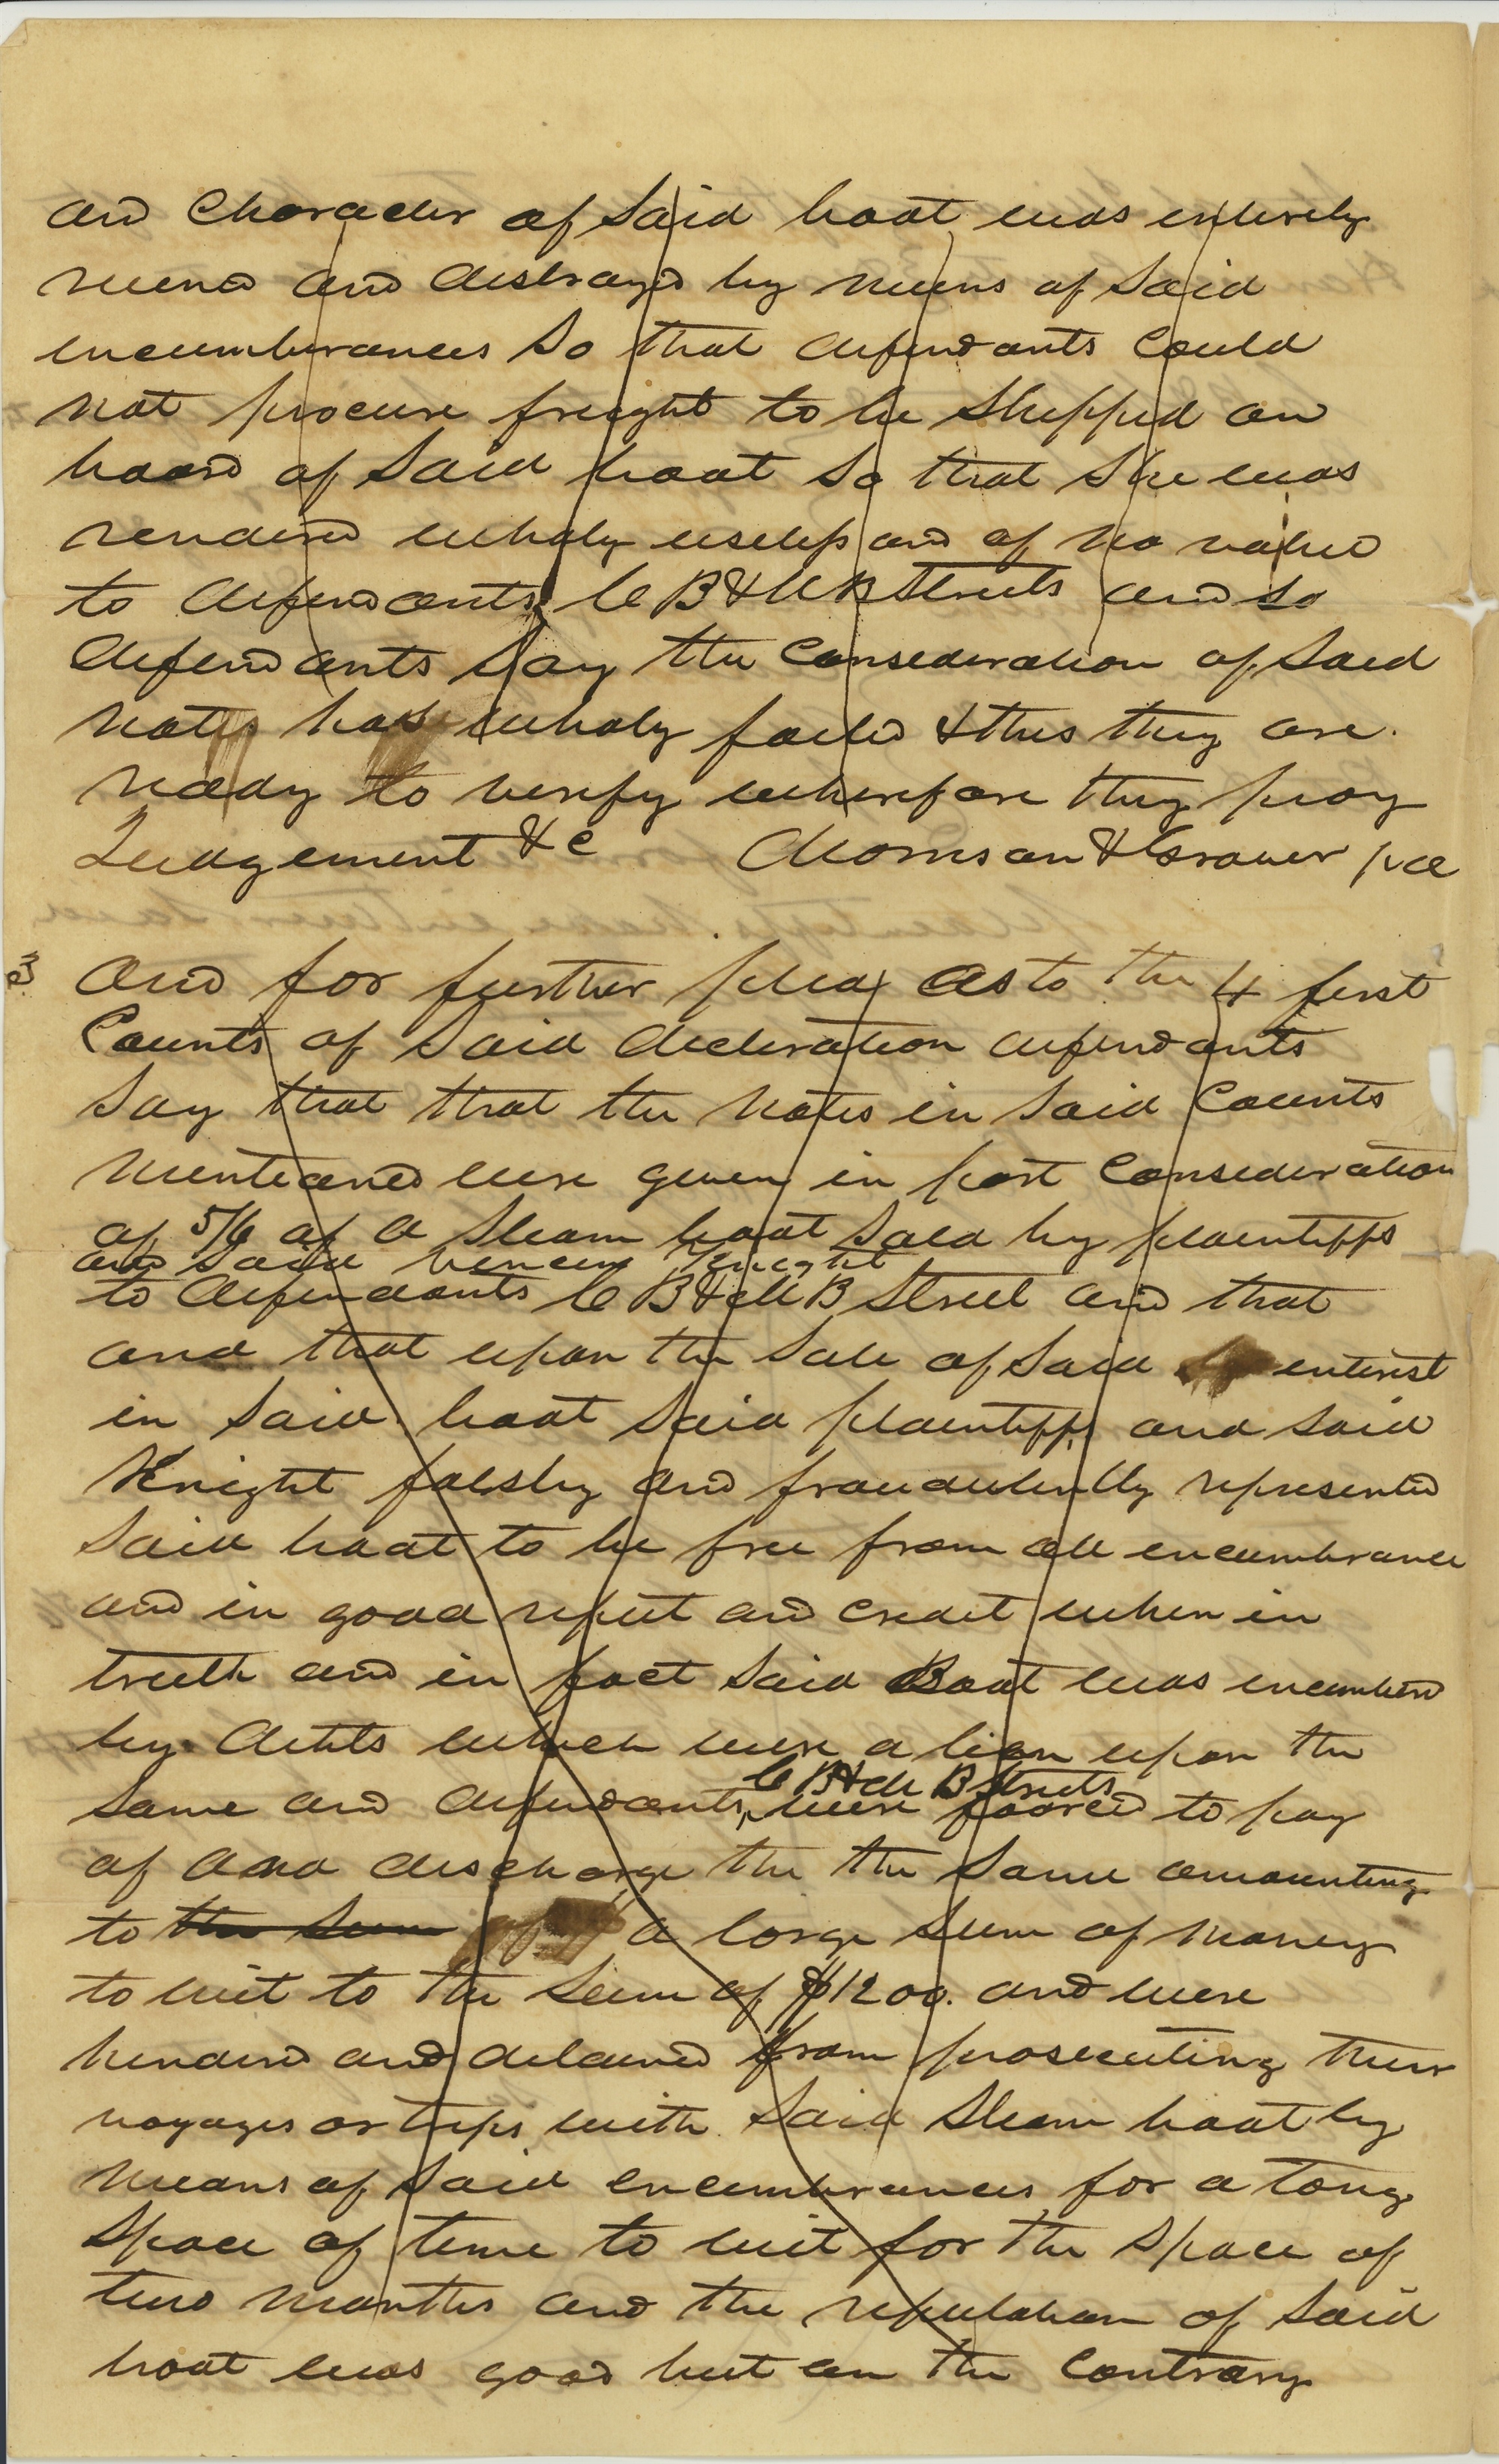 and Character of Said boat was entirely
ruend and destroyd by means of Said
encumbrances So that defendants Could
not procure freight to be Shipped on
board of Said boat So that She was
renderd wholy useless and of no value
to defendants C B & M B Streets and So
defendants Say the Consideration of Said
notes has wholy faild & this they are
ready to verify wherefore they pray
Judgement &c Morrison & Grover pd
3 And for further plea as to the 4 first
Counts of Said decleration defendants
Say that that the notes in Said Counts
mentiond were given in part Consideration
of 5/6 of a Steam boat Sold by plaintiffs
and Said Knight
to defendants C B & M B Street and that
and that upon the Sale of Said interest
in Said boat Said plaintiffs and Said
Knight falsly and fraudulently represented
Said boat to be free from all encumbrance
and in good reput and credit when in
truth and in fact Said Boat was encumberd
by debts which were a lien upon the
C B & M B Streets
Same and defendants were foorced to pay
of and discharge the the Same amounting
to the Sum of a large Sum of money
to wit to the Sum of $1200. and were
henderd and delaied from prosecuting their
voyages or trips with Said Steam boat by
means of Said encumbrances for a long
Space of time to wit for the Space of
two months and the reputation of Said
boat was good but on the Contrary